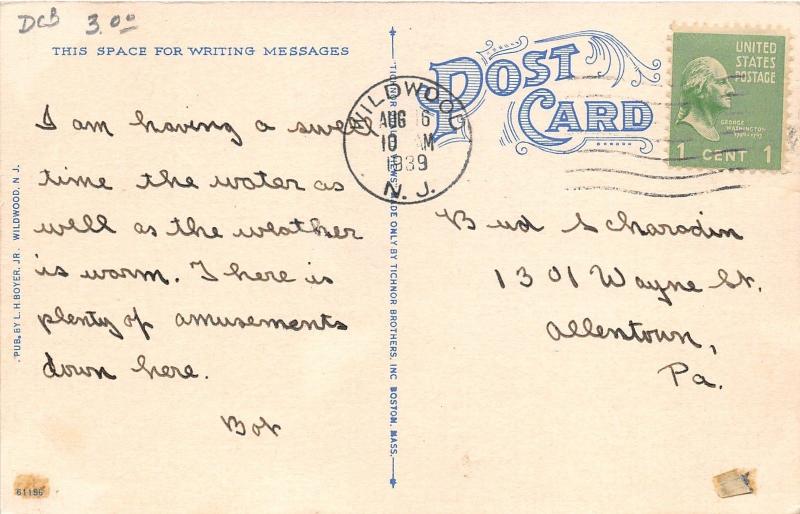 DCB 3.00
THIS SPACE FOR WRITING MESSAGES
POST CARD
UNITED STATES POSTAGE
GEORGE WASHINGTON
1789-1797
1 CENT 1
WILDWOOD
AUG 16
10 AM
1939
N. J.
I am having a swell
time the water as
well as the weather
is warm. There is
plenty of amusements
down here.
Bob
Bud Scharadin
1301 Wayne St.
Allentown,
Pa.
PUB. BY L. H. BOYER, JR. WILDWOOD, N. J.
MADE ONLY BY TICHNOR BROTHERS, INC. BOSTON, MASS.
61196